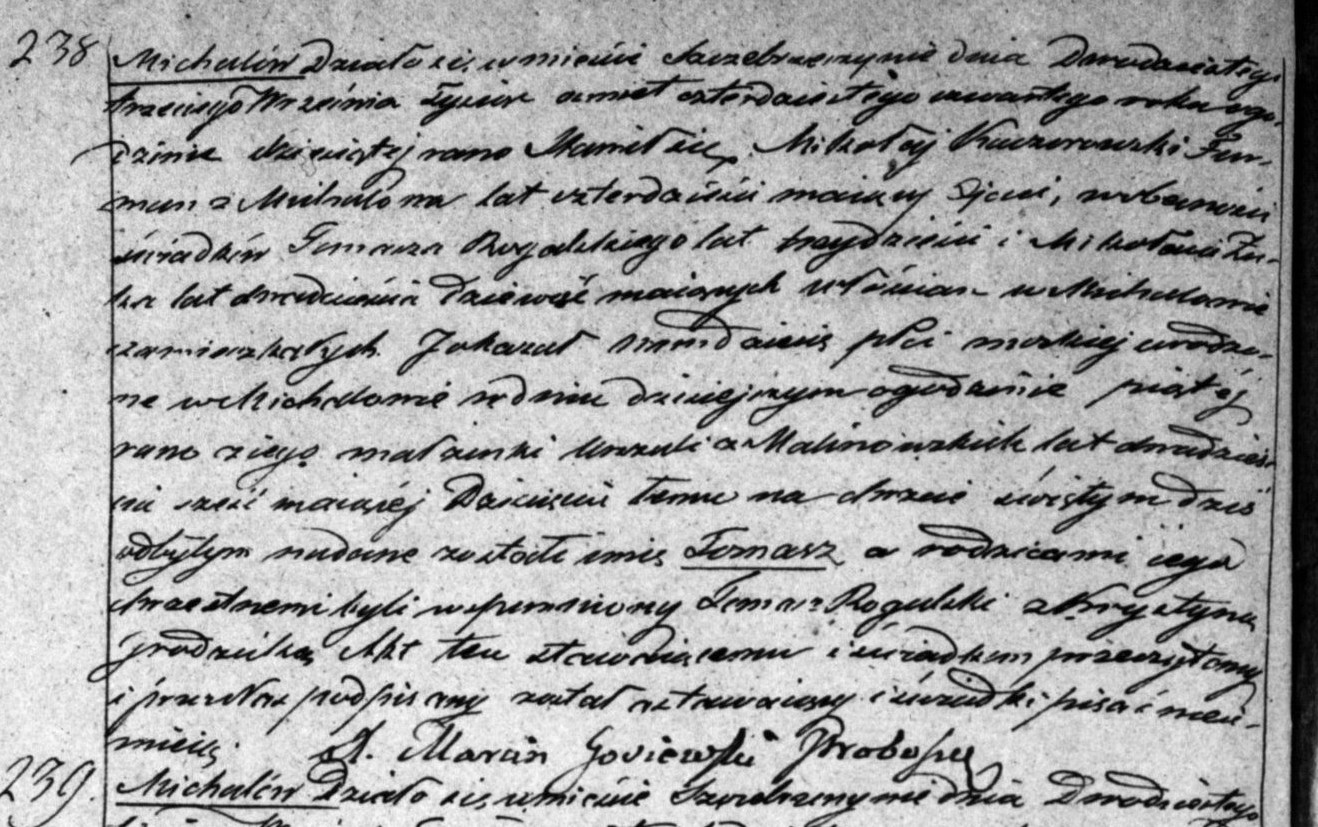 238 Michalów Działo się w mieście Szczebrzeszynie dnia Dwudziestego
trzeciego Września Tysiąc ośmset czterdziestego czwartego roku o go-
dzinie dziesiątej rano Stawił się Mikołaj Kaczorowski Fur-
man z Michalowa lat czterdzieści maiący Ojciec, w obecności
świadków Tomasza Rogalskiego lat trzydzieści i Mikołaia Żu-
ka lat dwadzieścia dziewięć maiących włościan w Michalowie
zamieszkałych. Jokazał nam dziecię płci męskiej urodzo-
ne w Michalowie w dniu dzisiejszym o godzinie piątéj
rano z iego małżonki Urszuli z Malinowskich lat dwadzieś-
cia sześć maiącéj Dziecięciu temu na chrzcie świętym dziś
odbytym nadane zostało imię Tomasz a rodzicami iego
chrzestnemi byli wspomniony Tomasz Rogalski z Krystyną
Akt ten stawaiącemu i świadkom przeczytany
i przez Nas podpisany został stawaiący i świadki pisać nieu-
mieią. X. Marcin Proboszcz
239. Michalów Działo się w mieście Szczebrzeszynie dnia Dwudziestego